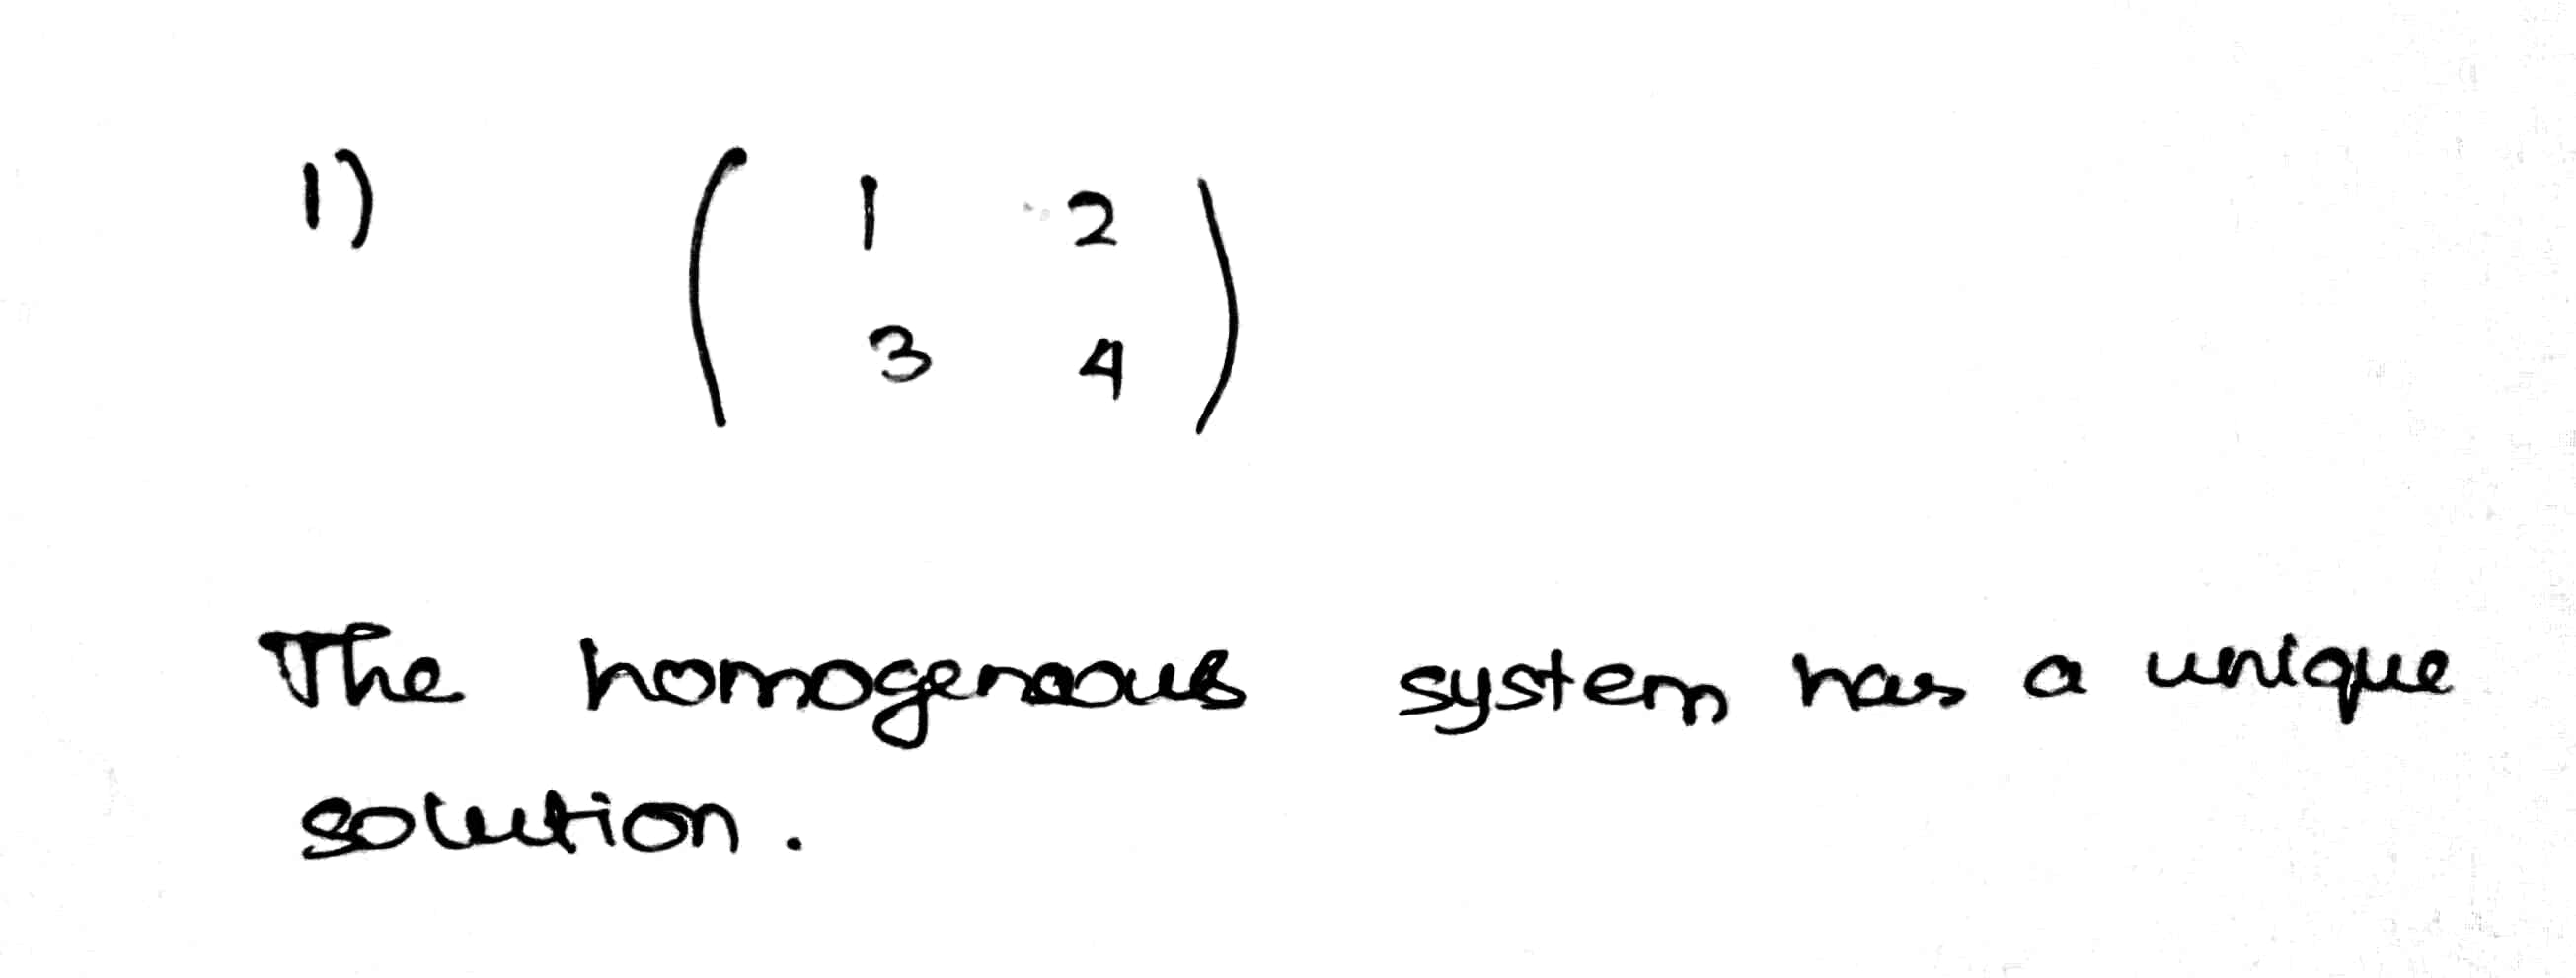 1) ( 1 2
3 4 )
The homogeneous system has a unique
solution.